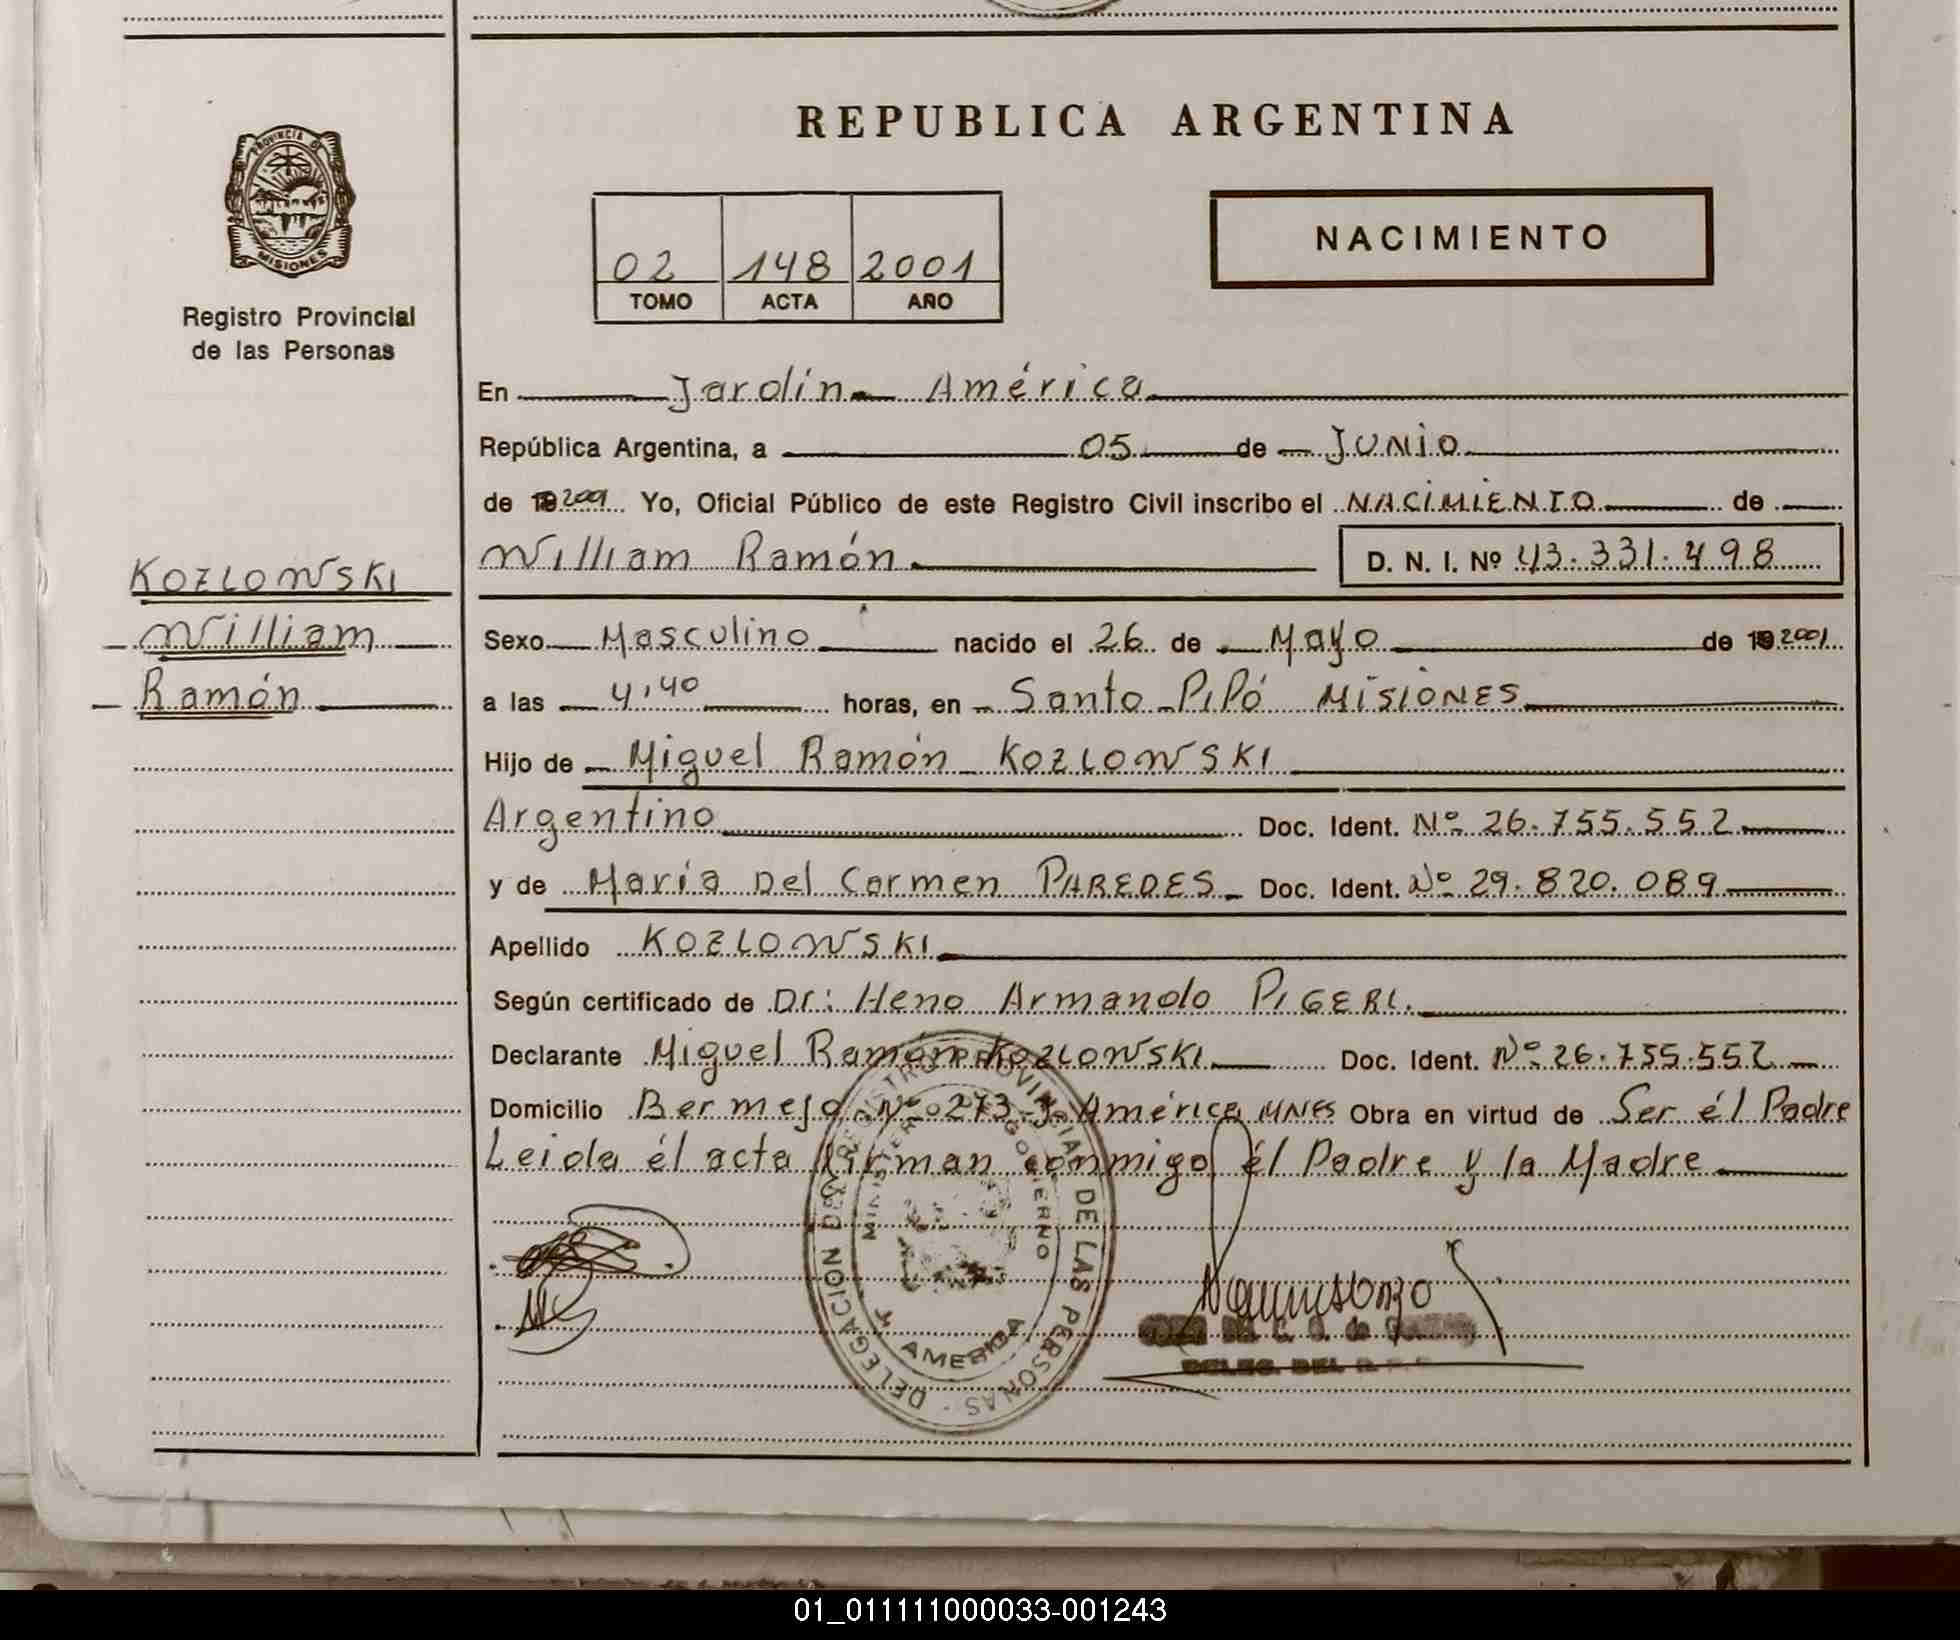 REPUBLICA ARGENTINA
PROVINCIA DE
MISIONES
Registro Provincial
de las Personas
02 148 2001
TOMO ACTA AÑO
NACIMIENTO
En Jardín América
República Argentina, a 05 de JUNIO
de 19 2001 Yo, Oficial Público de este Registro Civil inscribo el NACIMIENTO de
William Ramón D. N. I. Nº 43.331.498
KOZLOWSKI
William
Ramón
Sexo Masculino nacido el 26 de Mayo de 19 2001
a las 4,40 horas, en Santo PiPó MISIONES
Hijo de Miguel Ramón KOZLOWSKI
Argentino Doc. Ident. Nº 26.755.552
y de María Del Carmen PAREDES Doc. Ident. Nº 29.820.089
Apellido KOZLOWSKI
Según certificado de Dr: Heno Armando PIGERL.
Declarante Miguel Ramón KOZLOWSKI Doc. Ident. Nº 26.755.552
Domicilio Bermejo Nº 273 J. América MNES Obra en virtud de Ser él Padre
Leida él acta firman conmigo él Padre y la Madre
DELEGACION DEL REGISTRO PROVINCIAL DE LAS PERSONAS
MINISTERIO DE GOBIERNO
J. AMERICA
DELEG. DEL R.
01_011111000033-001243